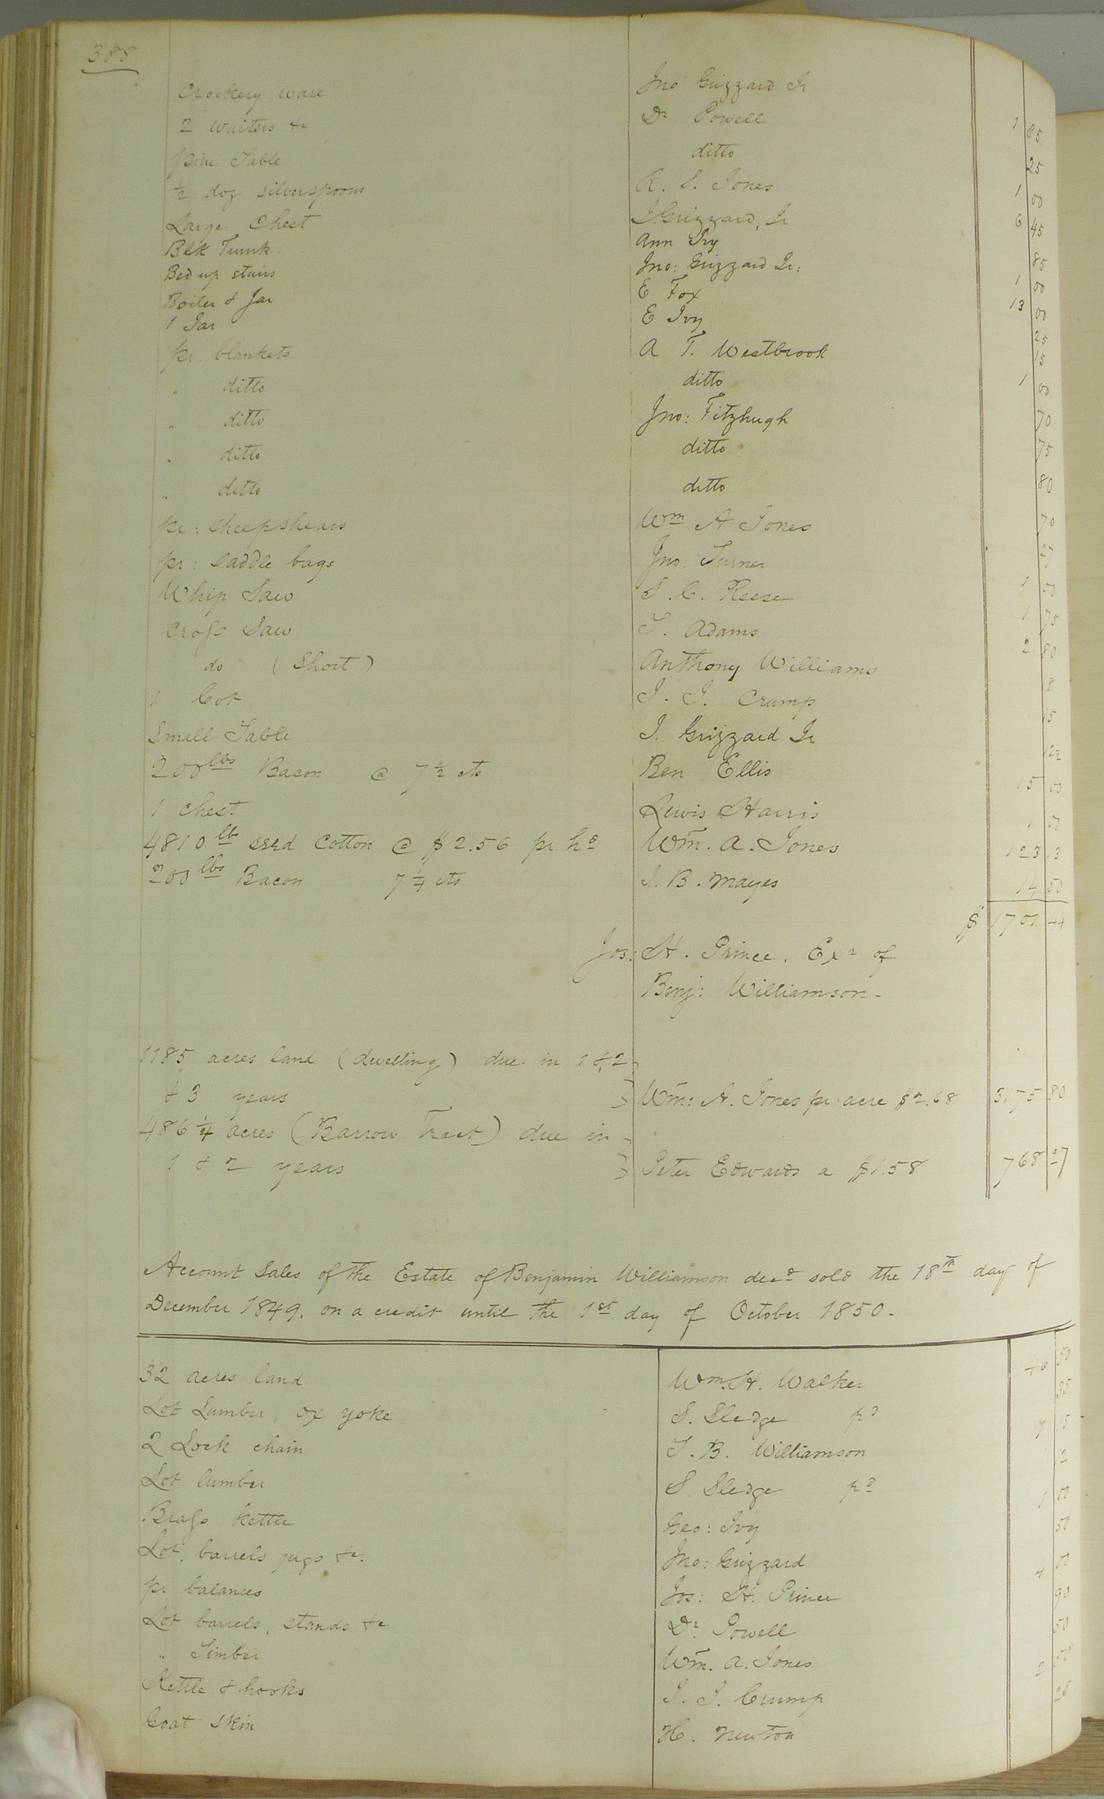 388
Crockery ware Jno Grizzard Jr 1 85
2 waiters &c Dr Powell 25
pine Table ditto 1 00
½ doz silverspoons R. S. Jones 6 45
Large Chest J. Grizzard, Jr 85
Blk Trunk Ann Ivy 1 00
Bed up stairs Jno: Grizzard Jr: 13 00
Boiler & Jar E Fox 25
1 Jar E Ivy 15
pr. blankets A T. Westbrook 1 00
" ditto ditto 70
" ditto Jno: Fitzhugh 75
" ditto ditto 80
" ditto ditto 70
pr: sheepshears Wm A Jones
pr: saddle bags Jno: Turner 1 50
Whip Saw S. C. Reese 1 75
Cross Saw T. Adams 2 80
do (Short) Anthony Williams
1 Cot J. J. Crump 5
Small Table J. Grizzard Jr
200 lbs Bacon @ 7½ cts Ben Ellis 15 00
1 chest Lewis Harris 1 50
4810 lb seed Cotton @ $2.56 pr hd Wm. A. Jones 123 13
200 lbs Bacon 7¼ cts S. B. Mayes 14 50
$ 1701 44
Jos: H. Prince. Exr of
Benj: Williamson.
1185 acres land (dwelling) due in 1 & 2
& 3 years Wm: A. Jones pr acre $2.68 3,175 80
486¼ acres (Barrow Tract) due in
1 & 2 years Peter Edwards a $1.58 768 27
Account Sales of the Estate of Benjamin Williamson decd sold the 18th day of
December 1849. on a credit until the 1st day of October 1850.
32 acres land Wm. H. Walker 40 50
Lot Lumber, ox yoke S. Sledge pd 35
2 Lock chain T. B. Williamson 5
Lot lumber S Sledge pd 2
Brass kettle Geo: Ivy 1 00
Lot, barrels jugs &c. Jno: Grizzard 50
pr balances Jos: H. Prince 4 00
Lot barrels, stands &c Dr Powell 90
" Timber Wm. A. Jones 50
Kettle & hooks J. J. Crump 2 50
Goat skin H. Newton 25